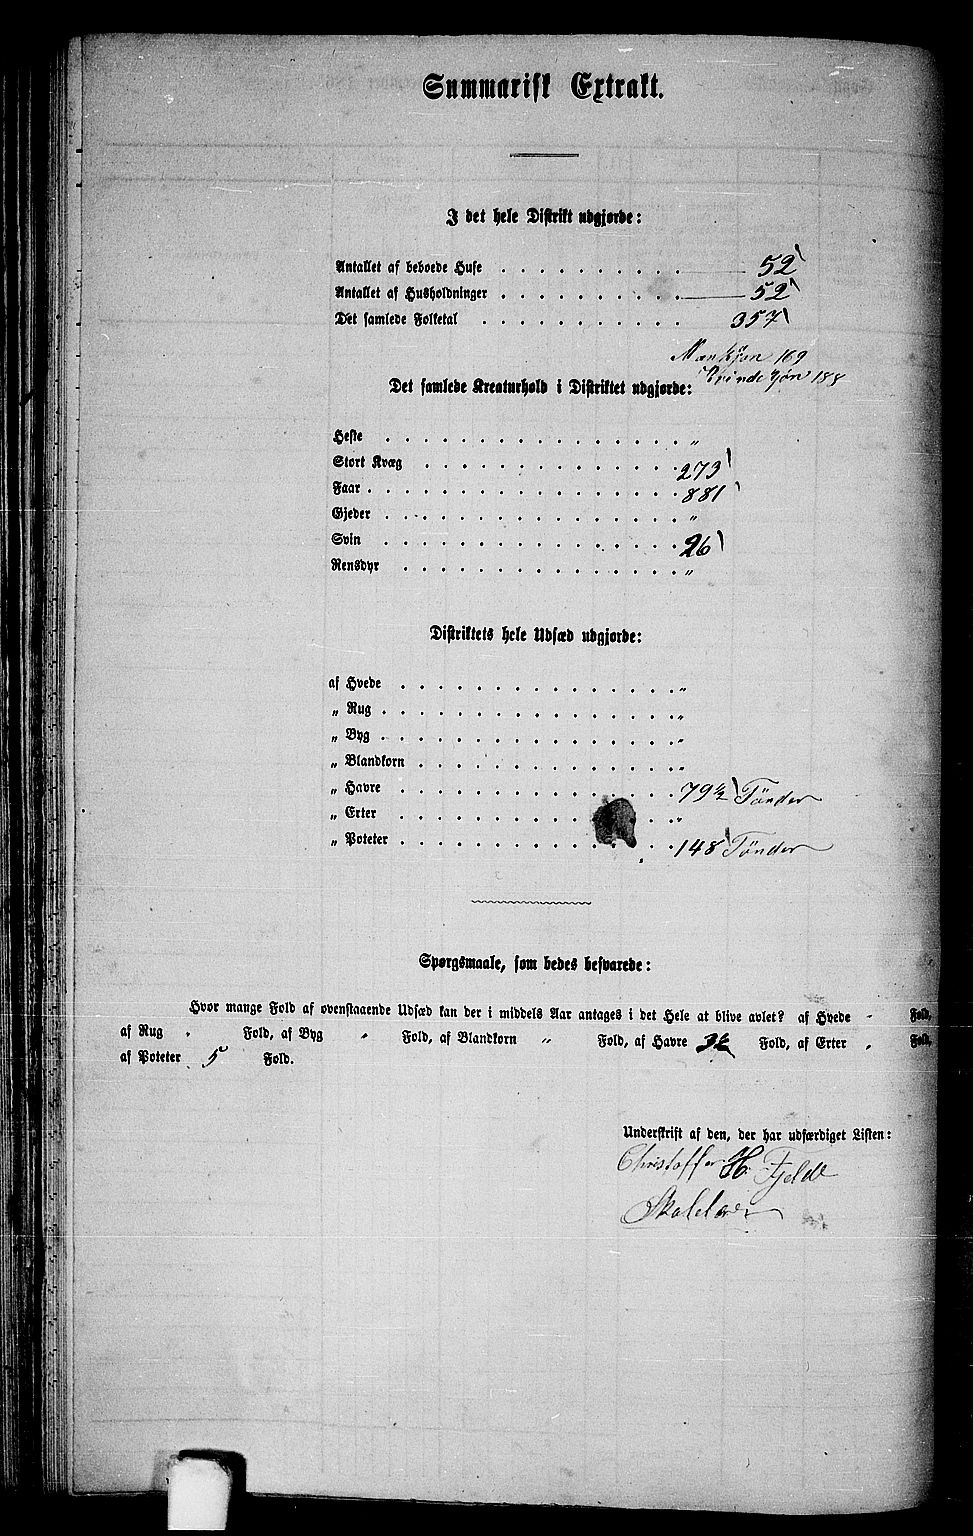 Summarisk Extrakt.
I det hele Distrikt udgjorde:
Antallet af beboede Huse . . . . . . . . . . 52
Antallet af Husholdninger . . . . . . . . . . 52
Det samlede Folketal . . . . . . . . . . . 357
Mankjøn 169
Kvindekjøn 188
Det samlede Kreaturhold i Distriktet udgjorde:
Heste . . . . . . . . . . . . . . . . „
Stort Kvæg . . . . . . . . . . . . . . 273
Faar . . . . . . . . . . . . . . . . . 881
Gjeder . . . . . . . . . . . . . . . . „
Svin . . . . . . . . . . . . . . . . 26
Rensdyr . . . . . . . . . . . . . . . „
Distriktets hele Udsæd udgjorde:
af Hvede . . . . . . . . . . . . . . . „
„ Rug . . . . . . . . . . . . . . . . „
„ Byg . . . . . . . . . . . . . . . . „
„ Blandkorn . . . . . . . . . . . . . . „
„ Havre . . . . . . . . . . . . . . . 79½ Tönder
„ Erter . . . . . . . . . . . . . . . „
„ Poteter . . . . . . . . . . . . . . . 148 Tönder
Spørgsmaale, som bedes besvarede:
Hvor mange Fold af ovenstaaende Udsæd kan der i middels Aar antages i det Hele at blive avlet? af Hvede „ Fold,
af Rug „ Fold, af Byg „ Fold, af Blandkorn „ Fold, af Havre 3½ Fold, af Erter „ Fold,
af Poteter 5 Fold.
Underskrift af den, der har udfærdiget Listen:
Christoffer H. Fjelde